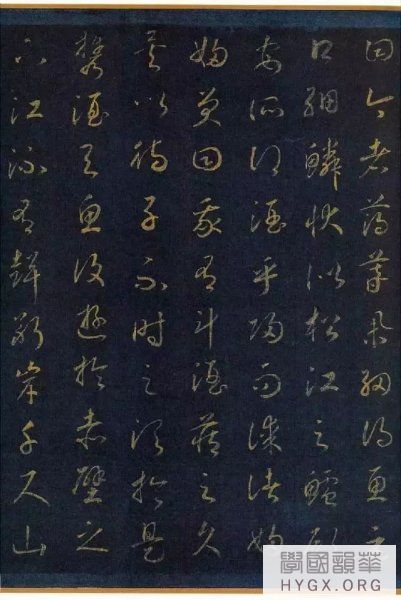 曰今者薄暮舉網得魚巨
口細鱗狀似松江之鱸顧
安所得酒乎歸而謀諸婦
婦曰我有斗酒藏之久
矣以待子不時之須於是
攜酒與魚復遊於赤壁之
下江流有聲斷岸千尺山
學國韻華
HYGX.ORG